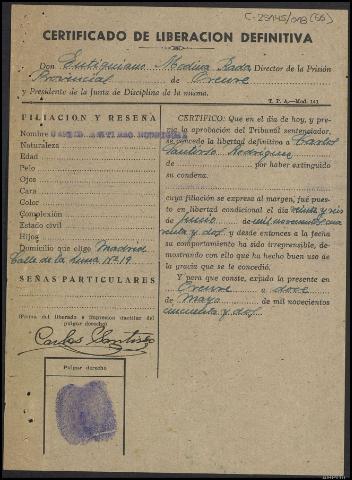 C-29145/018 (56)
CERTIFICADO DE LIBERACION DEFINITIVA
Don Eutiquiano Medina Rada, Director de la Prisión
Provincial de Orense
y Presidente de la Junta de Disciplina de la misma.
T. P. A.—Mod. 141
FILIACION Y RESEÑA
Nombre
Naturaleza
Edad
Pelo
Ojos
Cara
Color
Complexión
Estado civil
Hijos
Domicilio que elige Madrid
Calle de la Luna Nº 19
SEÑAS PARTICULARES
(Firma del liberado e impresión dactilar del
pulgar derecho)
Carlos Santiso
Pulgar derecho
CERTIFICO: Que en el día de hoy, y pre-
via la aprobación del Tribunal sentenciador,
se concede la libertad definitiva a Carlos
Santiso Rodríguez
de por haber extinguido
su condena.
cuya filiación se expresa al margen, fué pues-
to en libertad condicional el día
de Junio de mil novecientos cua
renta y dos y desde entonces a la fecha
su comportamiento ha sido irreprensible, de-
mostrando con ello que ha hecho buen uso de
la gracia que se le concedió.
Y para que conste, expido la presente en
Orense a doce
de Mayo de mil novecientos
cincuenta y dos.